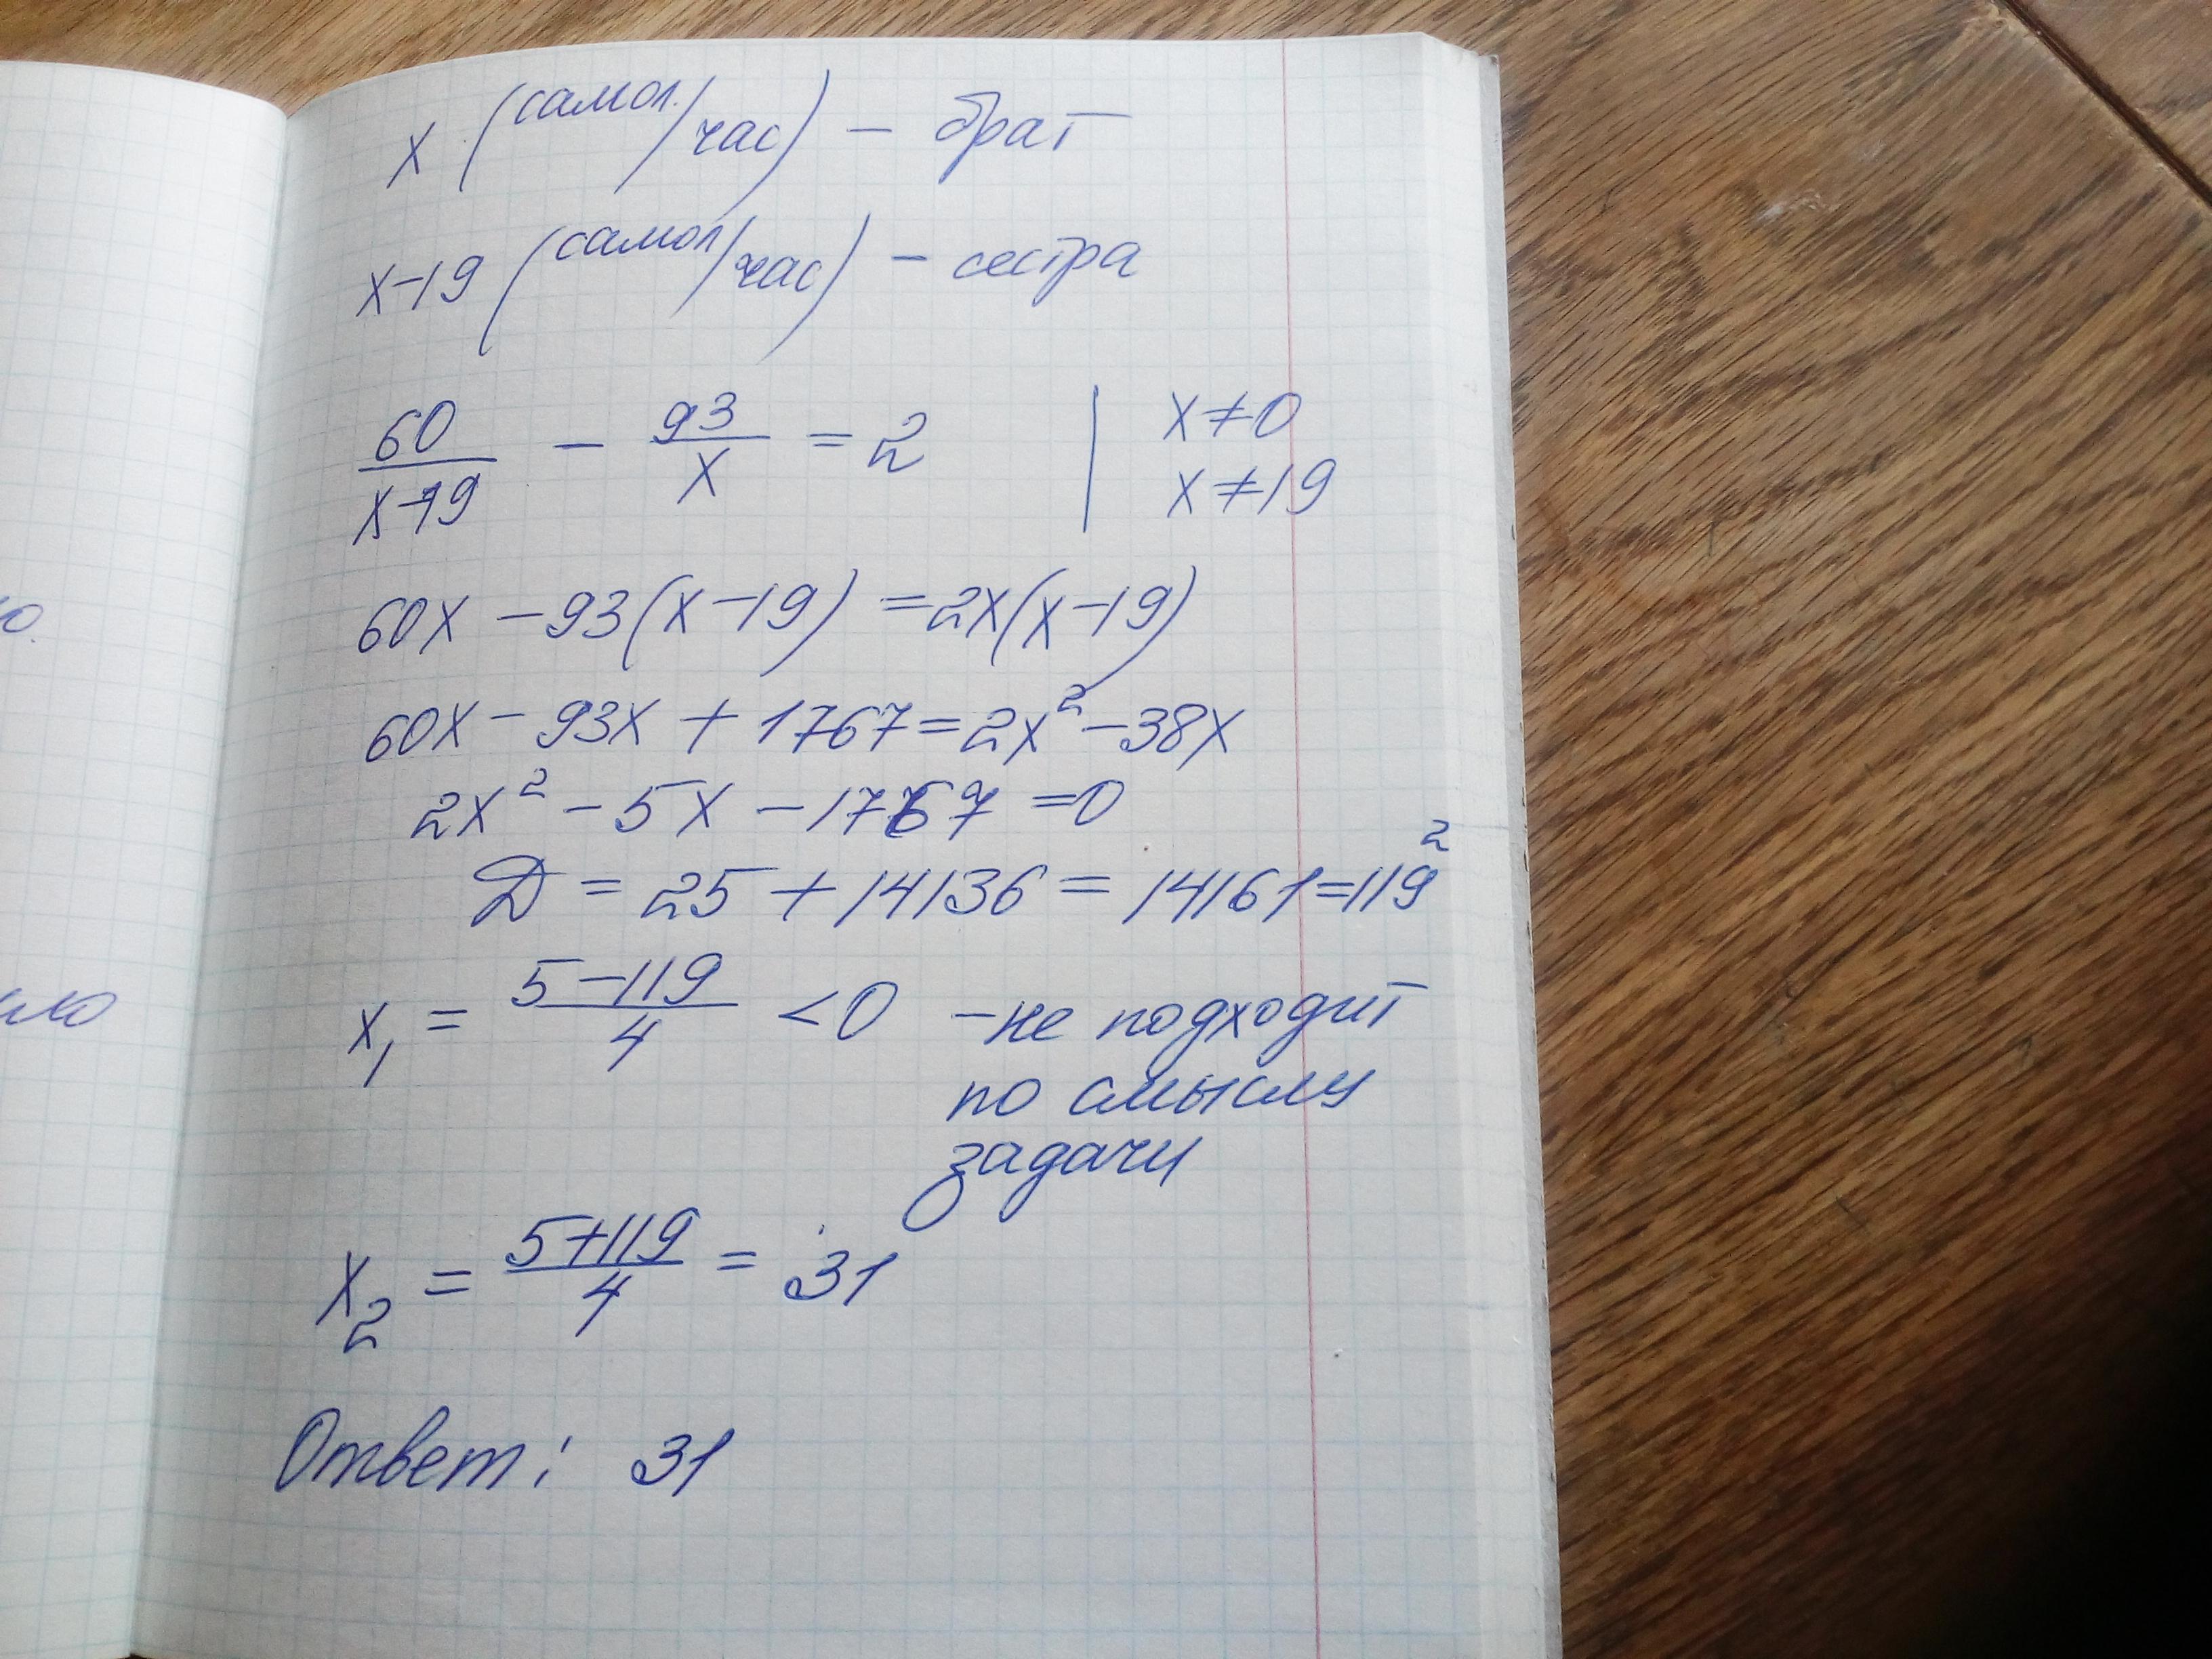 x (самол./час) – брат
x–19 (самол/час) – сестра
60/(x–19) – 93/x = 2 | x≠0
x≠19
60x – 93(x–19) = 2x(x–19)
60x – 93x + 1767 = 2x² – 38x
2x² – 5x – 1767 = 0
D = 25 + 14136 = 14161 = 119²
x₁ = (5–119)/4 < 0 – не подходит
по смыслу
задачи
x₂ = (5+119)/4 = 31
Ответ: 31